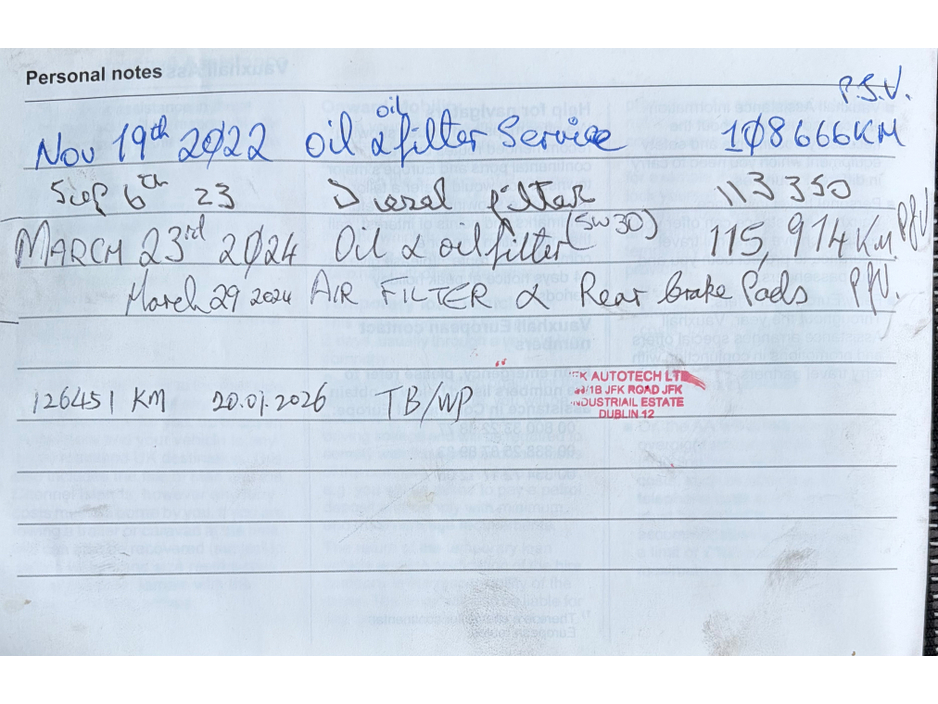 Personal notes
P.S.V.
Nov 19th 2022 oil & oil filter Service 108666KM
Sep 6th 23 Diesel filter 113 350
MARCH 23rd 2024 Oil & oil filter (5W30) 115,914 KM
March 29 2024 AIR FILTER & Rear brake Pads
126451 KM 20.01.2026 TB/WP
AUTOTECH LTD
JFK ROAD JFK
INDUSTRIAIL ESTATE
DUBLIN 12